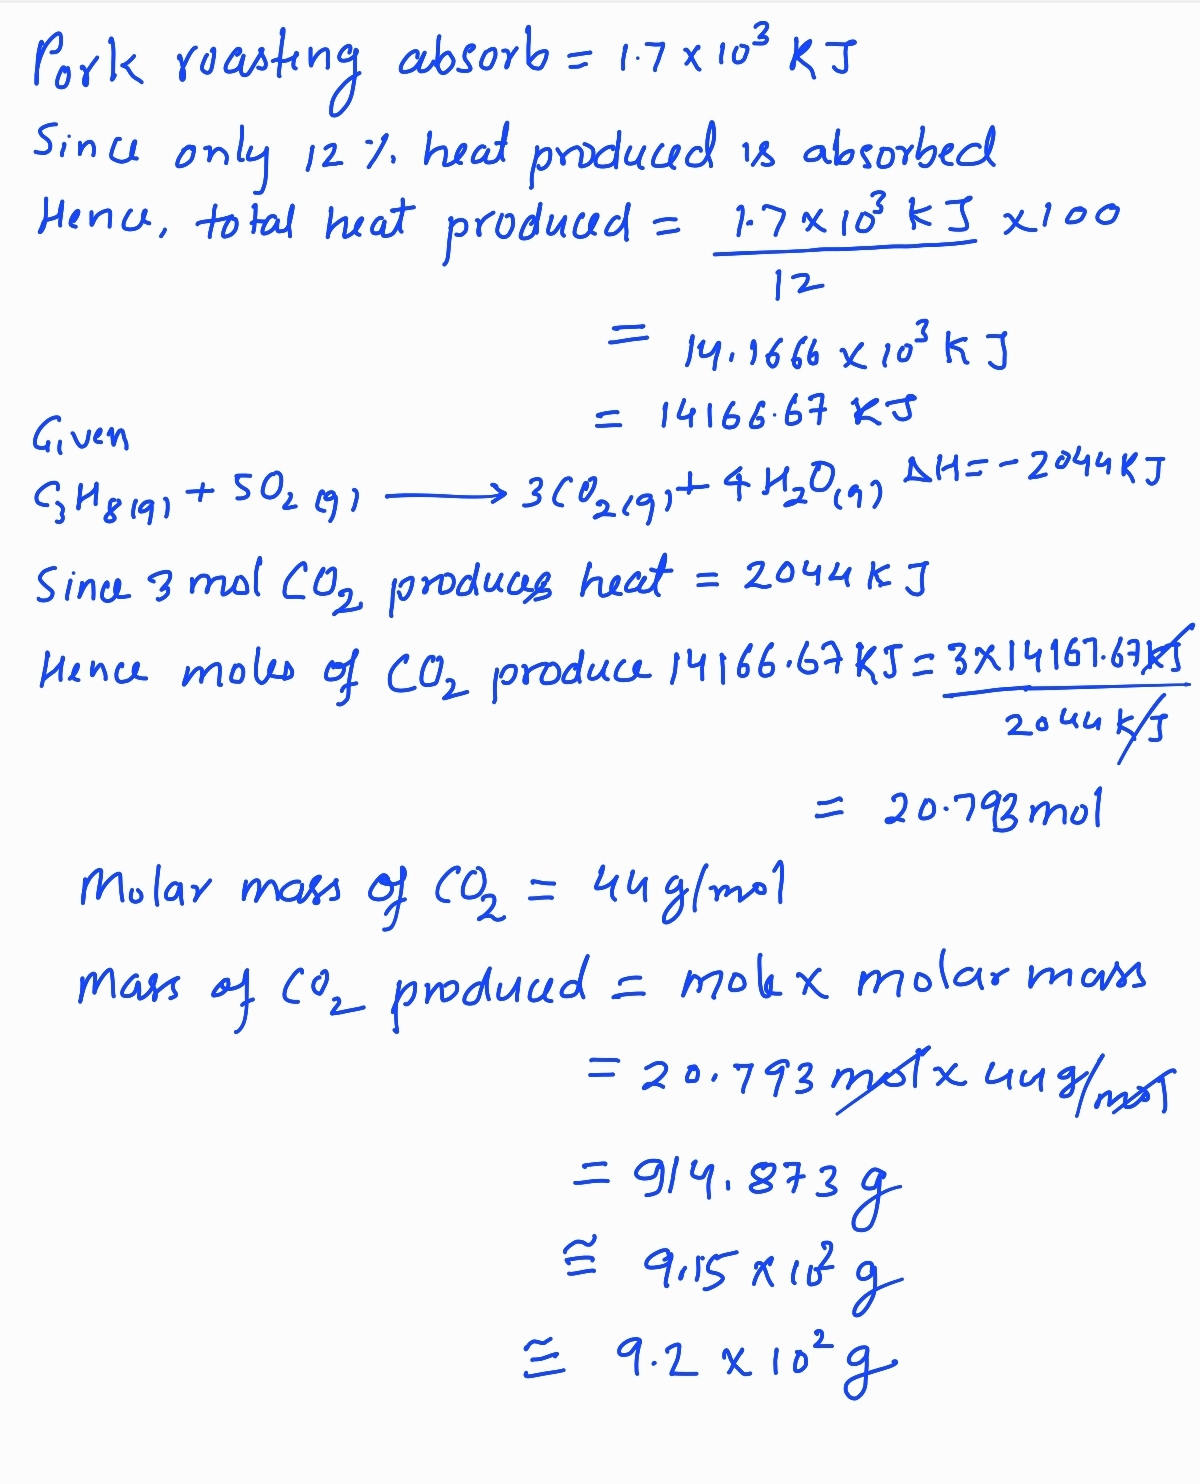 Pork roasting absorb = 1.7 x 10³ KJ
Since only 12 % heat produced is absorbed
Hence, total heat produced = 1.7 x 10³ KJ / 12 x 100
= 14.1666 x 10³ KJ
= 14166.67 KJ
Given
C₃H₈(g) + 5O₂(g) ⟶ 3CO₂(g) + 4H₂O(g) ΔH = -2044KJ
Since 3 mol CO₂ produces heat = 2044 KJ
Hence moles of CO₂ produce 14166.67 KJ = 3x14167.67KJ / 2044 KJ
= 20.793 mol
Molar mass of CO₂ = 44 g/mol
Mass of CO₂ produced = mole x molar mass
= 20.793 mol x 44 g/mol
= 914.873 g
≅ 9.15 x 10² g
≅ 9.2 x 10² g